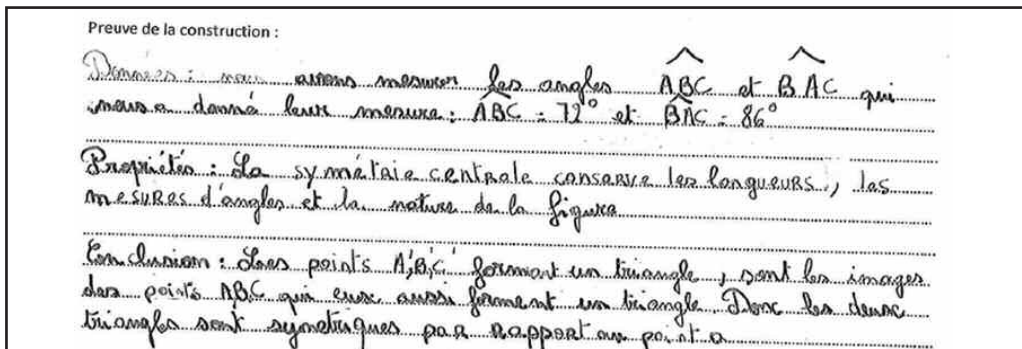 Preuve de la construction :
Données : nous avons mesurer les angles ABC et BAC qui
nous a donné leur mesure : ABC = 72° et BAC = 86°
Propriétés : La symétrie centrale conserve les longueurs, les
mesures d'angles et la nature de la figure
Conclusion : Les points A',B',C' formant un triangle, sont les images
des points ABC qui eux aussi forment un triangle. Donc les deux
triangles sont symetriques par rapport au point o